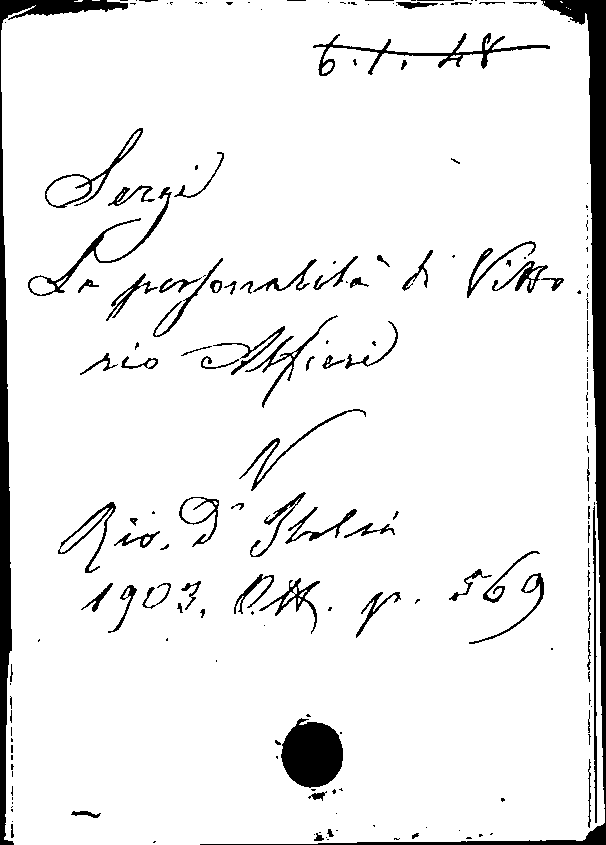 6.1.48
Sergi
La personalità di Vitto-
rio Alfieri
V
Riv. D' Italia
1903. Ott. p. 569